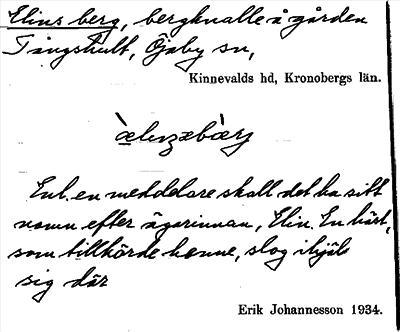 Elins berg, bergknalle å gården
Tångshult, Öjaby sn,
Kinnevalds hd, Kronobergs län.
Enl. en meddelare skall det ha sitt
namn efter ägarinnan, Elin. En häst,
som tillhörde henne, slog ihjäl
sig där
Erik Johannesson 1934.